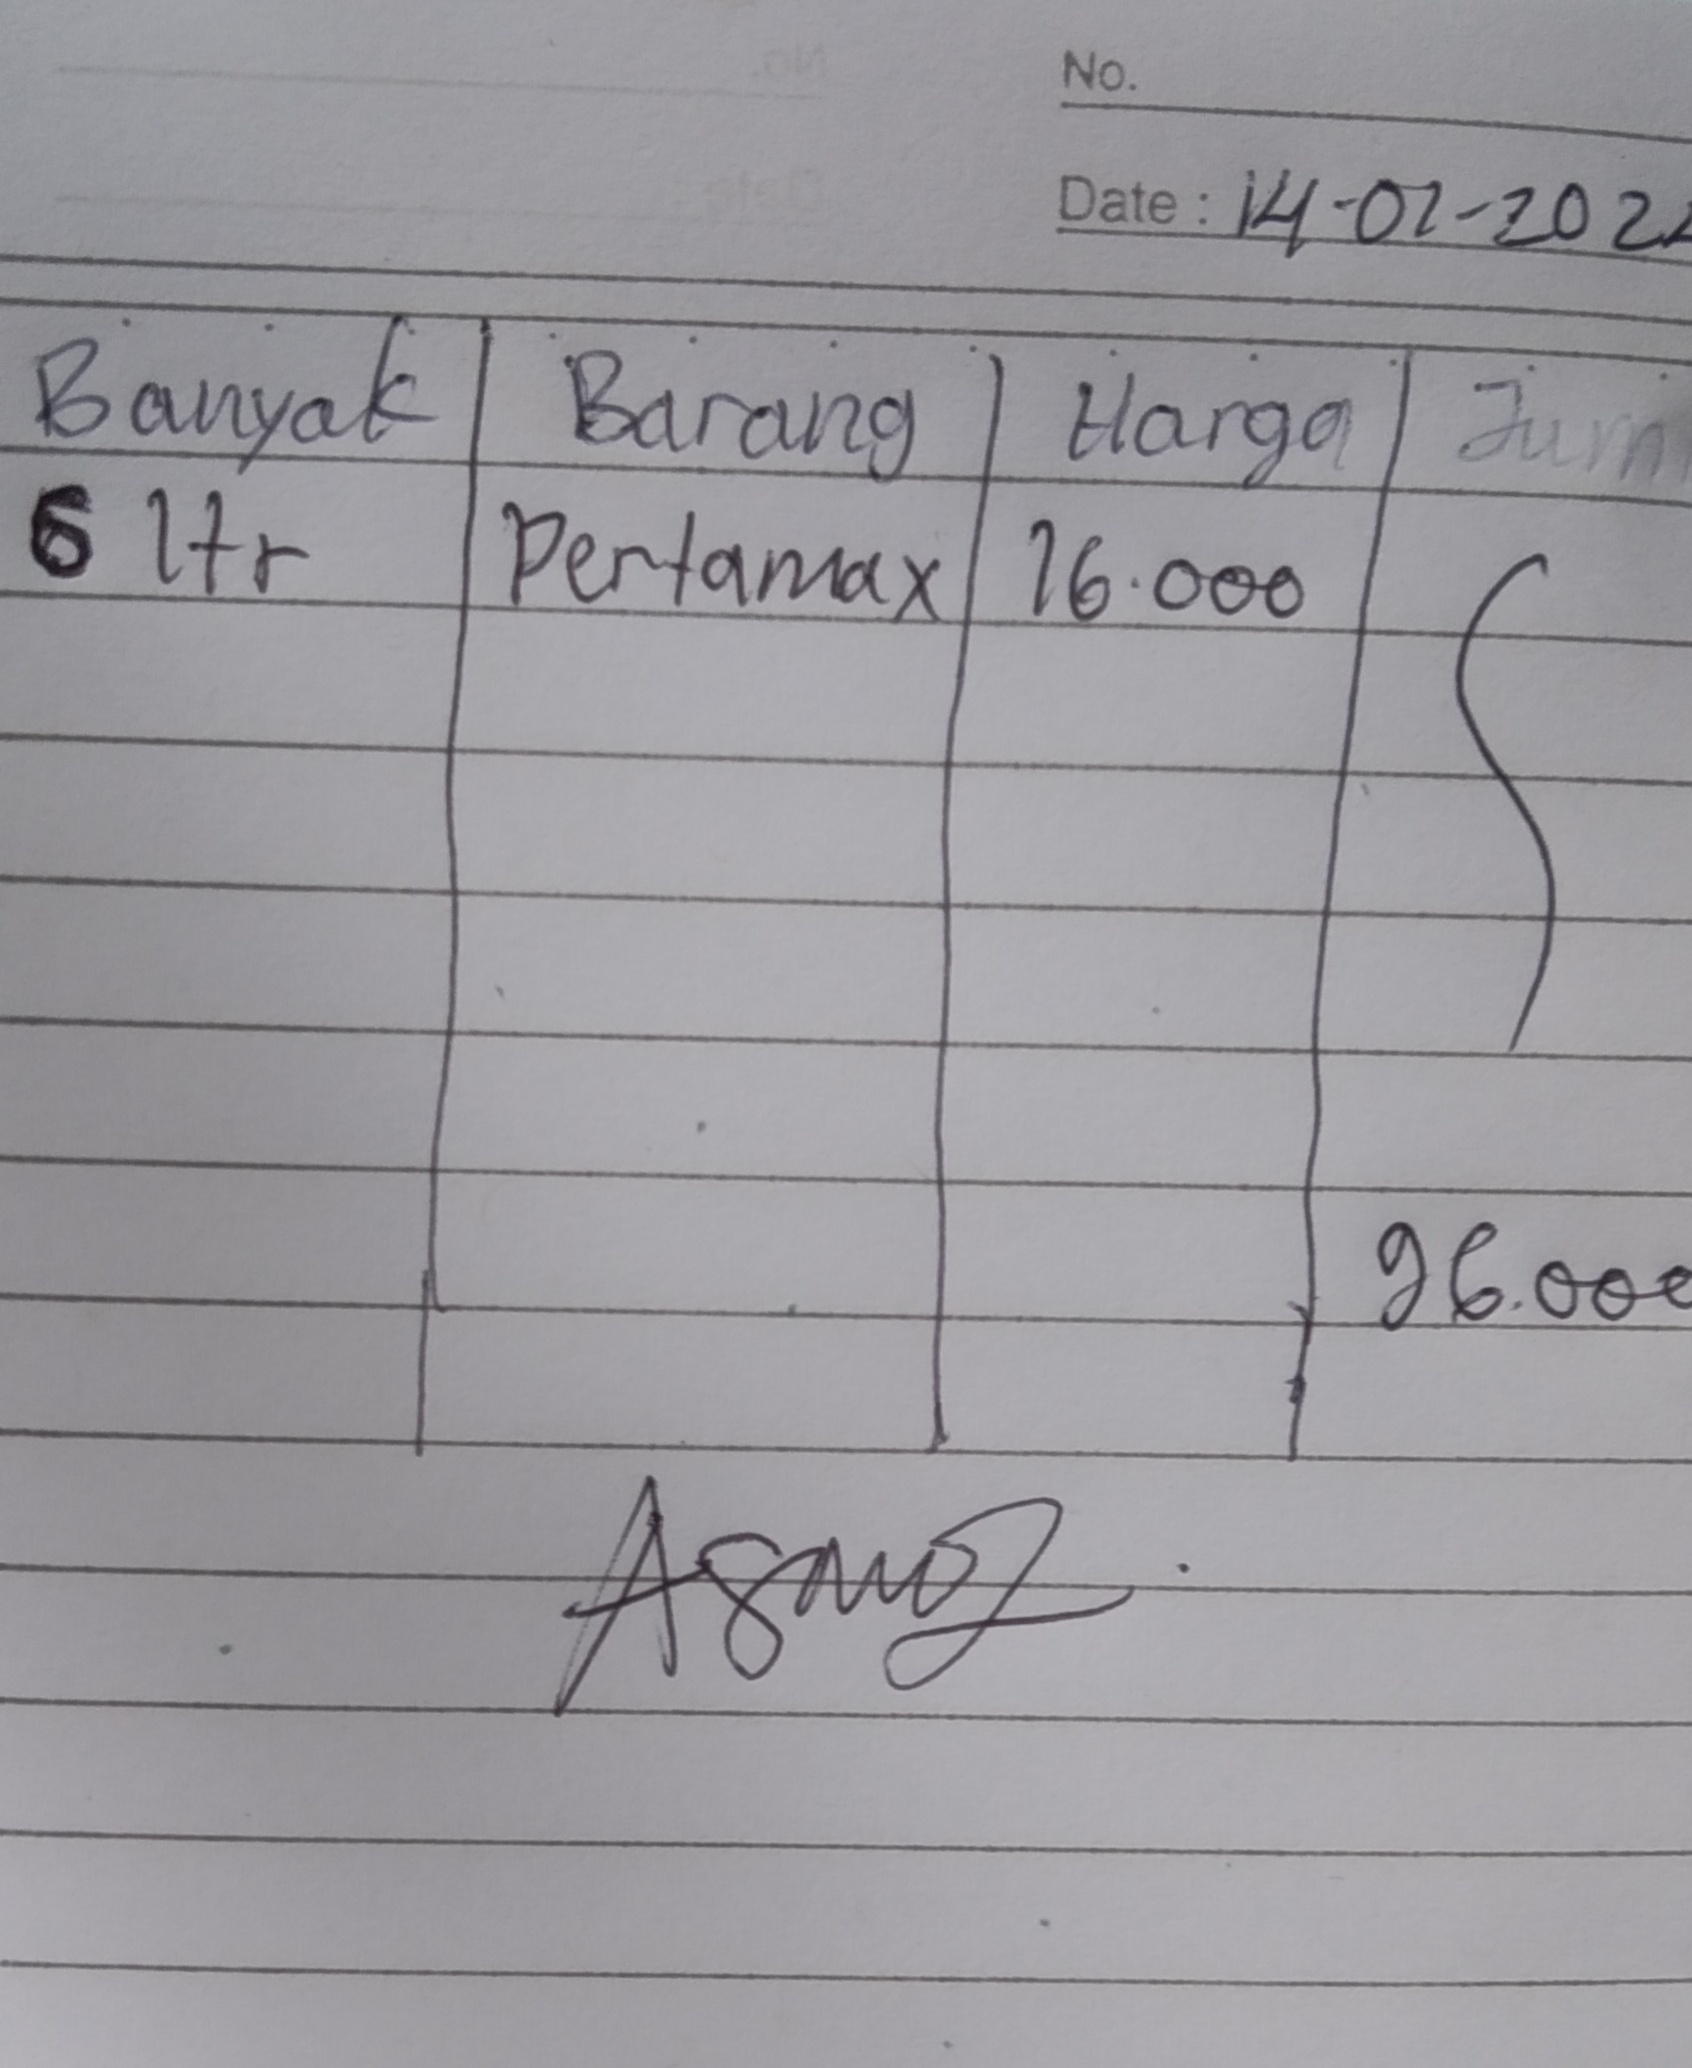 No.
Date : 14-02-202
Banyak Barang Harga Jum
6 ltr Pertamax 16.000
96.000